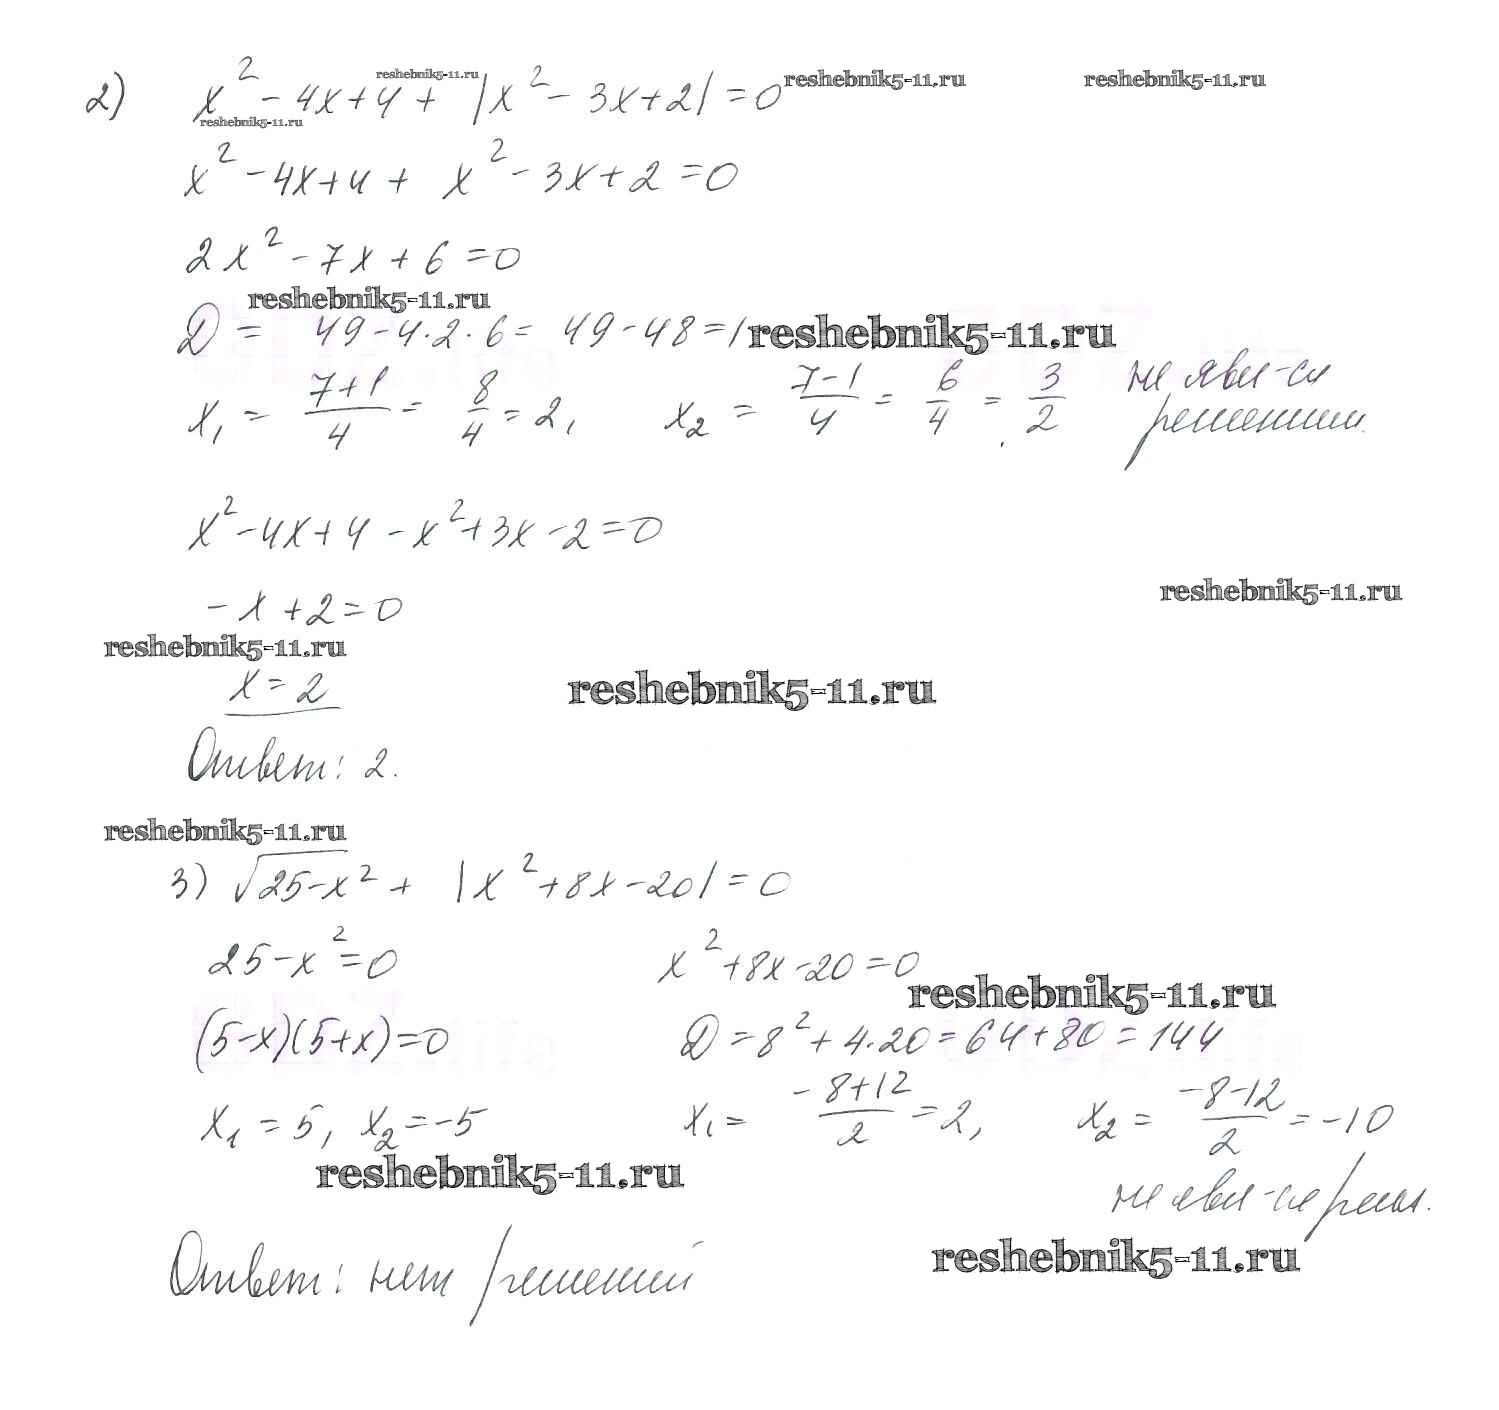 reshebnik5-11.ru
2) x² - 4x + 4 + |x² - 3x + 2| = 0 reshebnik5-11.ru reshebnik5-11.ru
reshebnik5-11.ru
x² - 4x + 4 + x² - 3x + 2 = 0
2x² - 7x + 6 = 0
reshebnik5-11.ru
D = 49 - 4·2·6 = 49 - 48 = 1 reshebnik5-11.ru
x₁ = (7+1)/4 = 8/4 = 2, x₂ = (7-1)/4 = 6/4 = 3/2 не явл-ся
решением.
x² - 4x + 4 - x² + 3x - 2 = 0
-x + 2 = 0
reshebnik5-11.ru
reshebnik5-11.ru
x = 2
reshebnik5-11.ru
Ответ: 2.
reshebnik5-11.ru
3) √(25-x²) + |x² + 8x - 20| = 0
25 - x² = 0 x² + 8x - 20 = 0
reshebnik5-11.ru
(5-x)(5+x) = 0 D = 8² + 4·20 = 64 + 80 = 144
x₁ = 5, x₂ = -5 x₁ = (-8+12)/2 = 2, x₂ = (-8-12)/2 = -10
reshebnik5-11.ru
не явл-ся реш.
Ответ: нет решений
reshebnik5-11.ru